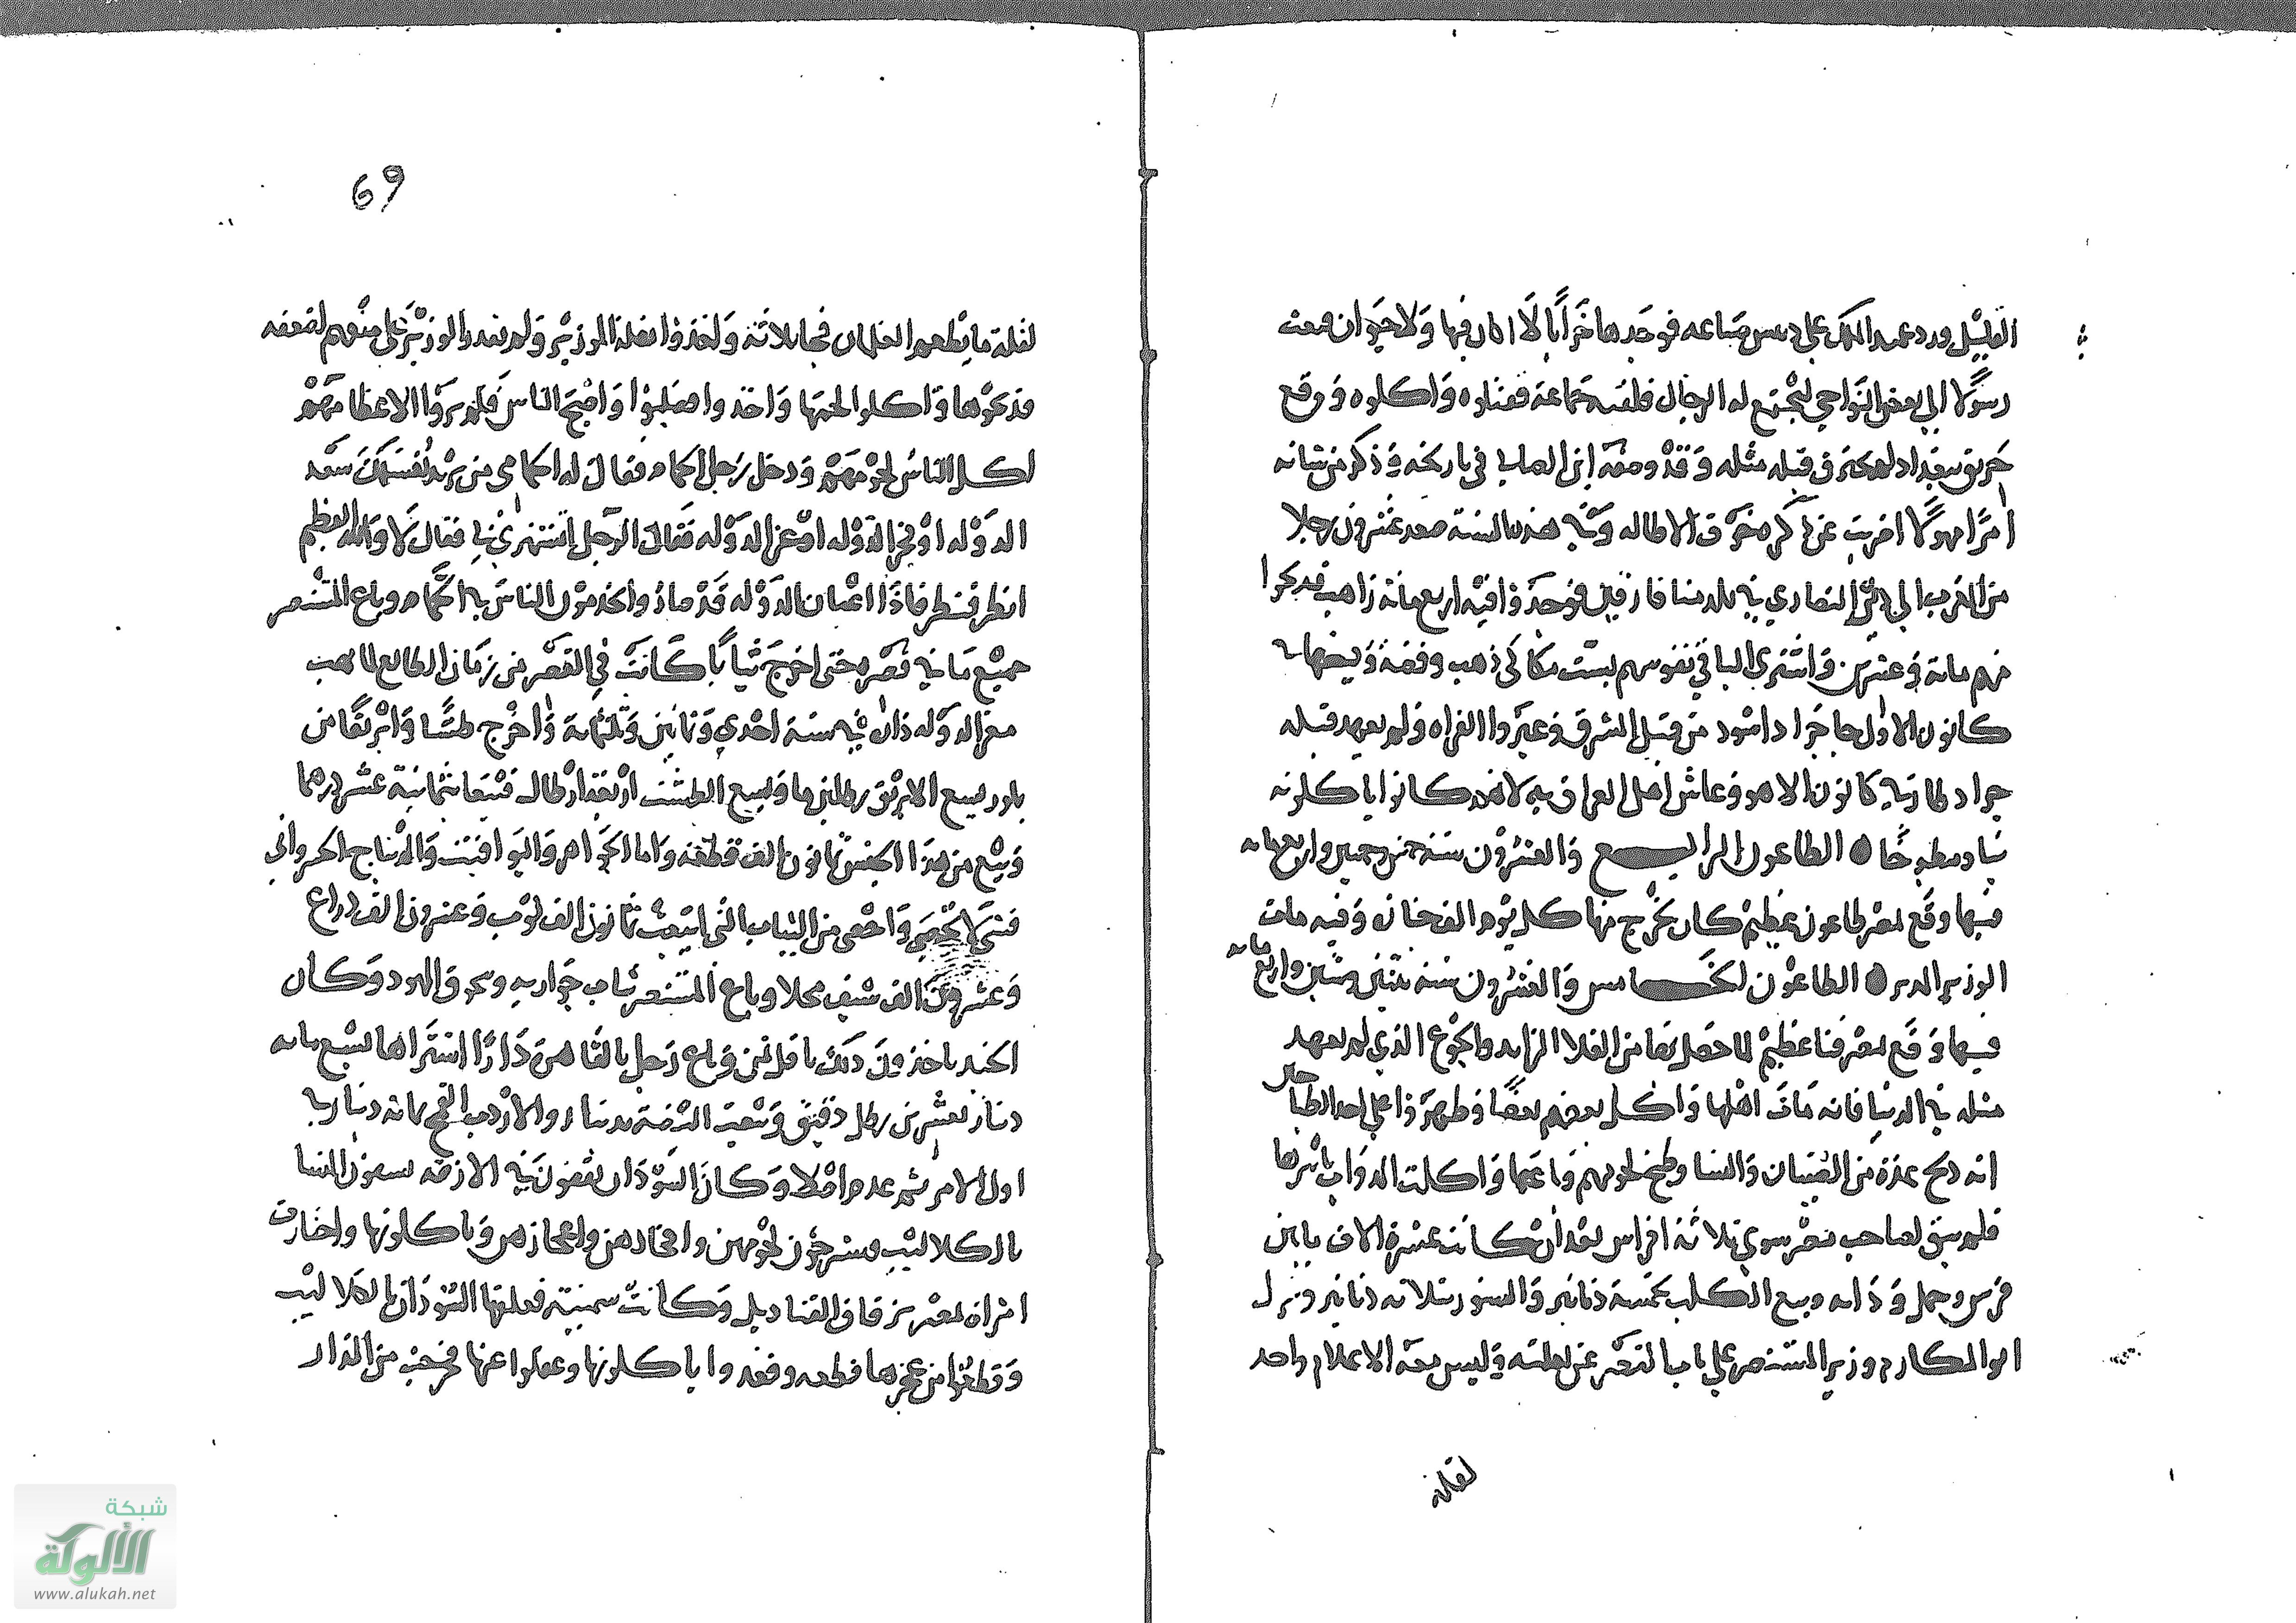 القليل وورد عميد الملك على دبيس ضياعه فوجدها خرابا لا اكار فيها ولا حيوان فبعث
رسولا الى بعض النواحي لتجتمع له الرجال فلقيه جماعة فقتلوه واكلوه ووقع
حريق ببغداد لم يجر في قبله مثله وقد وصفه ابن الصابي في تاريخه وذكر من شانه
امرا مهولا اضربت عن ذكره خوف الاطاله وفي هذه السنة صعد عشرون رجلا
من الغرب الى دير النصاري في بلد ميافارقين فوجدوا فيه اربع مائة راهب فذبحوا
منهم مائة وعشرين واشترى الباقي نفوسهم بست مكاكي ذهب وفضة وفيها في
كانون الاول جا جراد اسود من قبل الشرق وعبروا الفراه ولم يعهد قبله
جراد طار في كانون الا هو وعاش اهل العراق به لانهم كانوا ياكلونه
نيا ومطبوخا ه الطاعون الرابع والعشرون سنة خمس وخمسين واربعمايه
فيها وقع بمصر طاعون عظيم كان يخرج منها كل يوم الف جنازه وفيه مات
الوزير المدبر ه الطاعون الخامس والعشرون سنة ثنتين وستين واربعمايه
فيها وقع بمصر فنا عظيم لما حصل بها من الغلا الزايد والجوع الذي لم يعهد
مثله في الدنيا فانه مات اهلها واكل بعضهم بعضا وظهروا على احد الطباخين
انه ذبح عدة من الصبيان والنسا وطبخ لحومهم وباعها واكلت الدواب باسرها
فلم يبق لصاحب مصر سوى ثلاثة افراس بعد ان كانت عشرة الاف ما بين
فرس وجمل ودابه وبيع الكلب بخمسة دنانير والسنور بثلاثه دنانير ونزل
ابو المكارم وزير المستنصر على باب القصر عن بغلته وليس معه الا غلام واحد
لقلة
69
لقلة ما يطعم الغلمان فجا ثلاثة واخذوا بغلة الوزير ولم يقدر الوزير على منعهم لضعفه
فذبحوها واكلوا لحمها واخذوا وصلبوا واصبح الناس فلم يروا الا عظامهم
اكل الناس لحومهم ودخل رجل الحمام فقال له الحمامي من تريد يخدمك سعد
الدوله او فخر الدوله او عز الدوله فقال الرجل اتستهزي بي فقال لا والله العظيم
انظر فنظر فاذا اعيان الدوله قد صاروا يخدمون الناس في الحمام وباع المستنصر
جميع ما في قصره حتى اخرج ثيابا كانت في القصر من زمان الطايع لما نهب
معز الدوله داره في سنة احدي وثمانين وثلثماية واخرج طستا وابريقا من
بلور يسع الابريق رطلين ما ويسع الطشت اربعة ارطال فبيعا بثمانية عشر درهما
وبيع من هذا الجنس ثمانون الف قطعة واما الجواهر واليواقيت والديباج الخسرواني
فشي لا يحصي واحصي من الثياب التي ابيعت ثمانون الف ثوب وعشرون الف دراع
وعشرون الف سيف محلا وباع المستنصر ثياب جواريه وبحوق المهود وكان
الجند ياخذون ذلك باقل ثمن وباع رجل بالقاهرة دارا اشتراها بتسع مايه
دينار بعشرين رطل دقيق وبيعت البيضة بدينار والاردب القمح بمائة دينار في
اول الامر ثم عدم اصلا وكان السودان يقفون في الازقه يصطفون النسا
بالكلاليب ويشرحون لحومهن وافخادهن واعجازهن وياكلونها واجتازت
امراة بمصر بزقاق القناديل وكانت سمينة فعلقها السودان بالكلاليب
وقطعوا من عجزها قطعه وقعدوا ياكلونها وغفلوا عنها فخرجت من الدار
شبكة
الألوكة
www.alukah.net